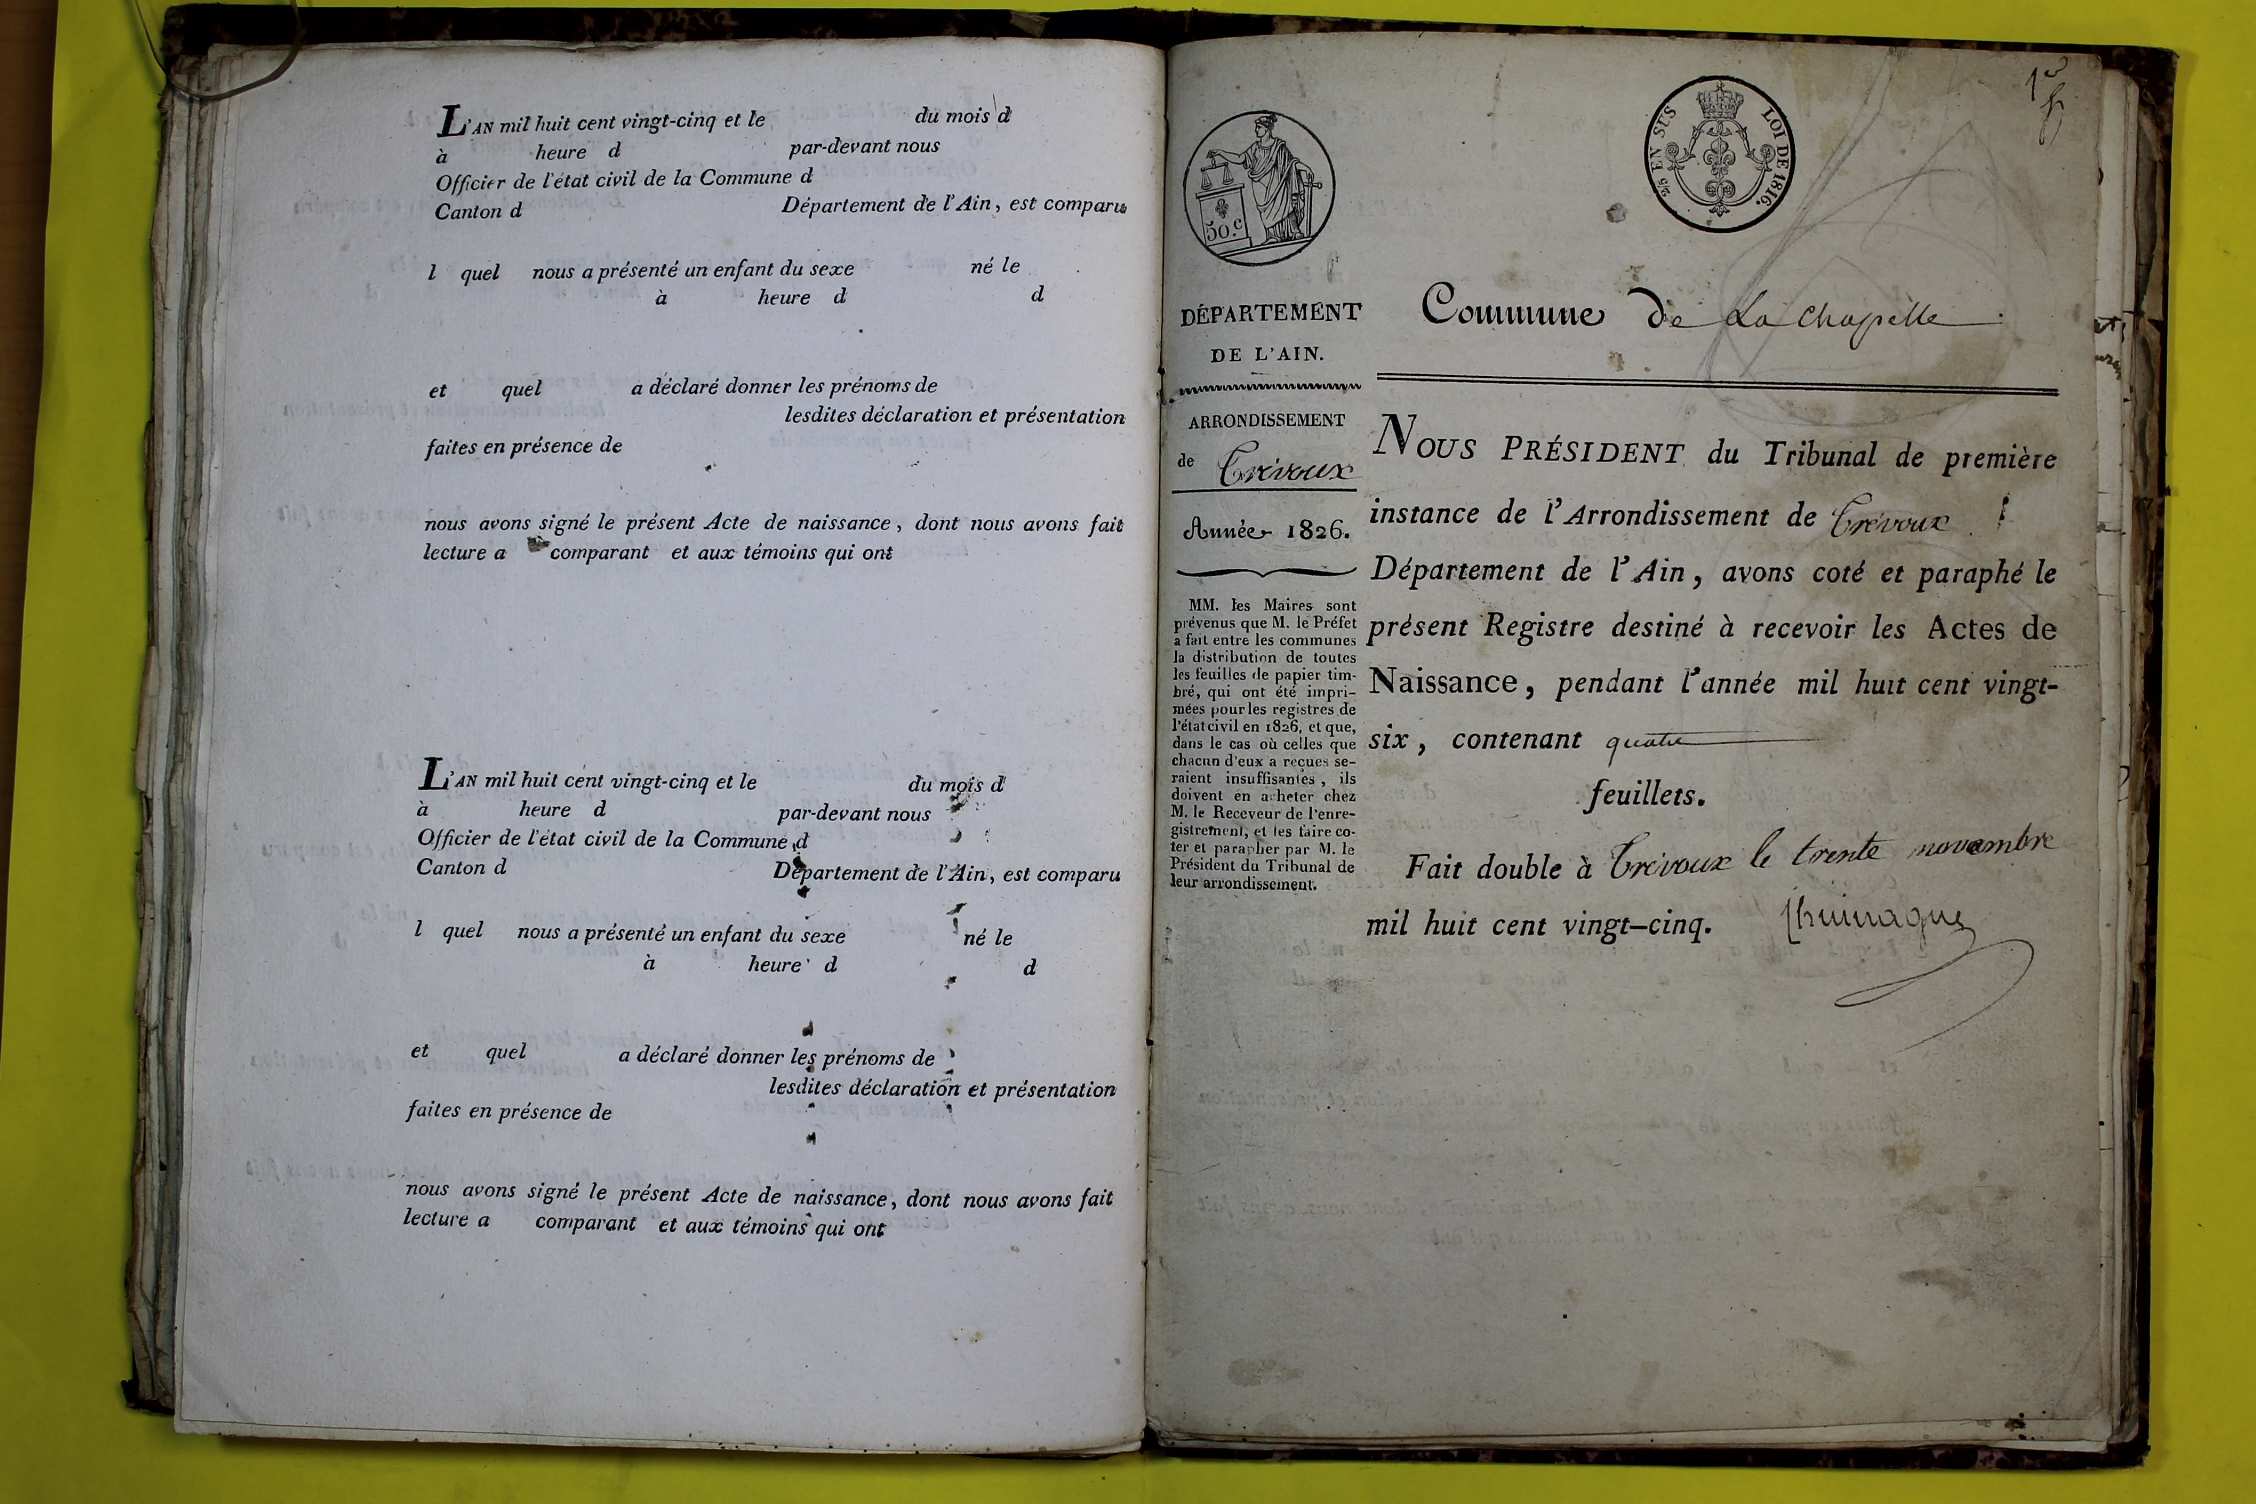 L'AN mil huit cent vingt-cinq et le du mois d
à heure d par-devant nous
Officier de l'état civil de la Commune d
Canton d Département de l'Ain, est comparu
l quel nous a présenté un enfant du sexe né le
à heure d d
et quel a déclaré donner les prénoms de
lesdites déclaration et présentation
faites en présence de
nous avons signé le présent Acte de naissance, dont nous avons fait
lecture a comparant et aux témoins qui ont
L'AN mil huit cent vingt-cinq et le du mois d
à heure d par-devant nous
Officier de l'état civil de la Commune d
Canton d Département de l'Ain, est comparu
l quel nous a présenté un enfant du sexe né le
à heure d d
et quel a déclaré donner les prénoms de
lesdites déclaration et présentation
faites en présence de
nous avons signé le présent Acte de naissance, dont nous avons fait
lecture a comparant et aux témoins qui ont
50.c
EN SUS LOI DE 1816.
DÉPARTEMENT
DE L'AIN.
ARRONDISSEMENT
de Trévoux
Année 1826.
MM. les Maires sont
prévenus que M. le Préfet
a fait entre les communes
la distribution de toutes
les feuilles de papier tim-
bré, qui ont été impri-
mées pour les registres de
l'état civil en 1826, et que,
dans le cas où celles que
chacun d'eux a reçues se-
raient insuffisantes, ils
doivent en acheter chez
M. le Receveur de l'enre-
gistrement, et les faire co-
ter et parapher par M. le
Président du Tribunal de
leur arrondissement.
Commune de La Chapelle
NOUS PRÉSIDENT du Tribunal de première
instance de l'Arrondissement de Trévoux
Département de l'Ain, avons coté et paraphé le
présent Registre destiné à recevoir les Actes de
Naissance, pendant l'année mil huit cent vingt-
six, contenant quatre
feuillets.
Fait double à Trévoux le trente novembre
mil huit cent vingt-cinq.